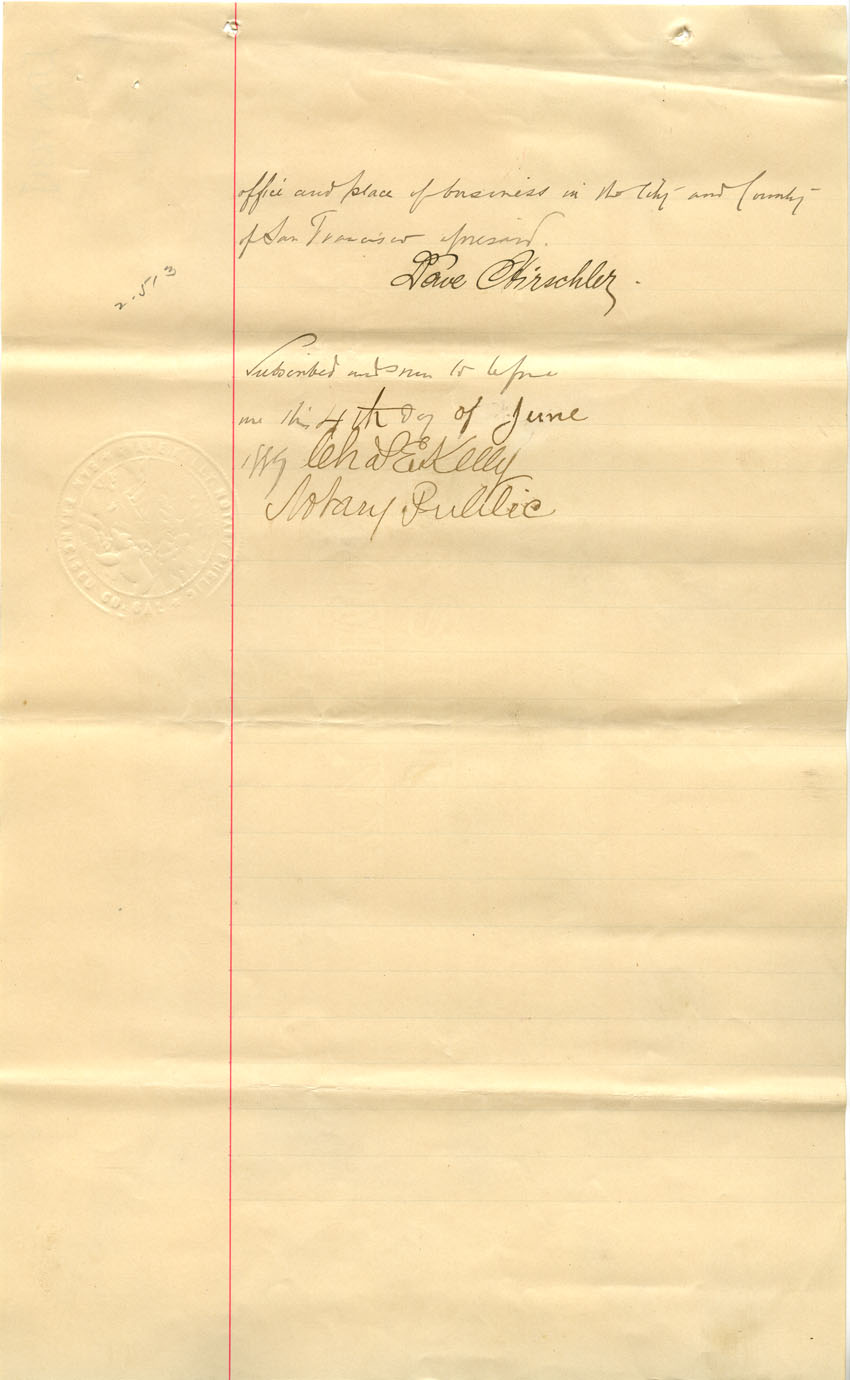 office and place of business in the City and County
of San Francisco aforesaid.
Dave Hirschler.
2.513
Subscribed and sworn to before
me this 4th day of June
1889 Chas E. Kelly
Notary Public